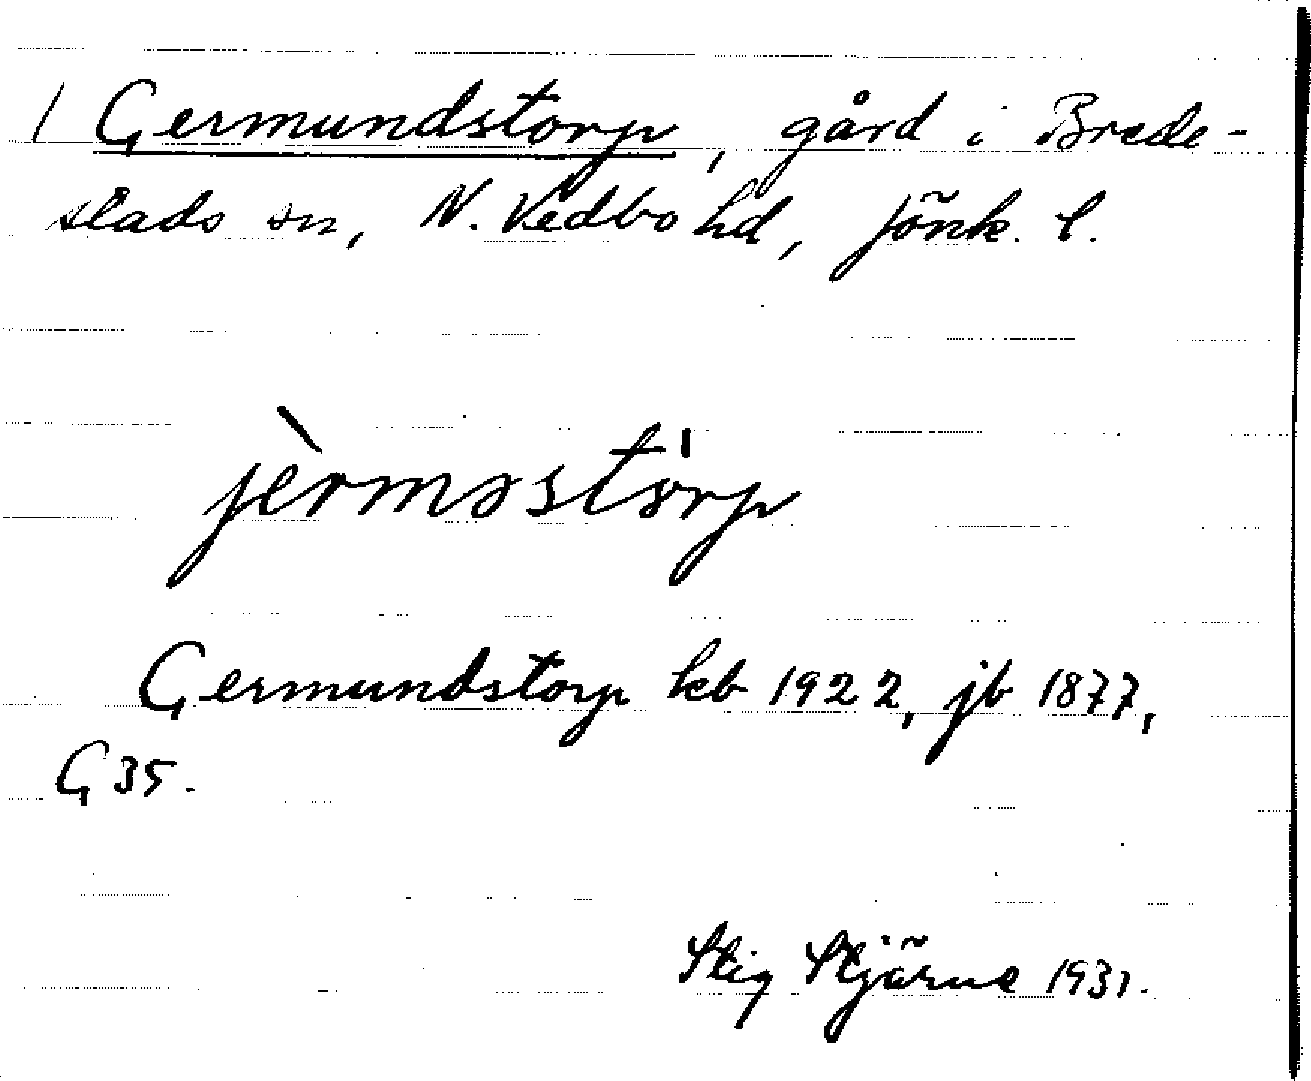 / Germundstorp, gård i Brede-
stads sn, N. Vedbo hd, Jönk. l.
jèrməstòrp
Germundstorp keb 1922, jb 1877,
G 35.
Stig Stjärne 1931.